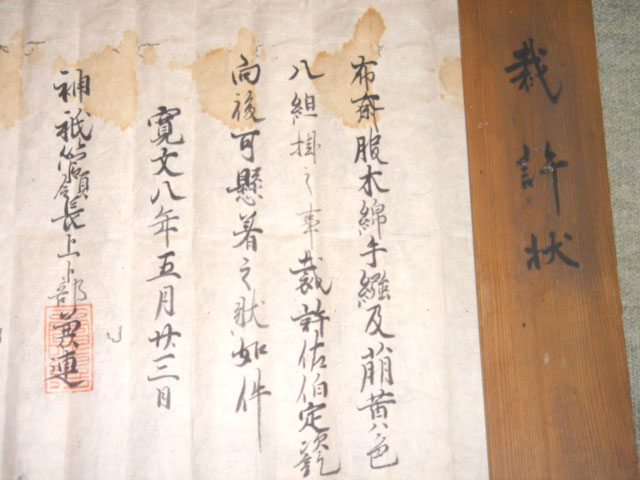 裁許状
布斎服木綿手繦及萠黄八色
八組掛之事裁許佐伯定訖
向後可懸着之状如件
寛文八年五月廿三日
神祇管領長上卜部兼連